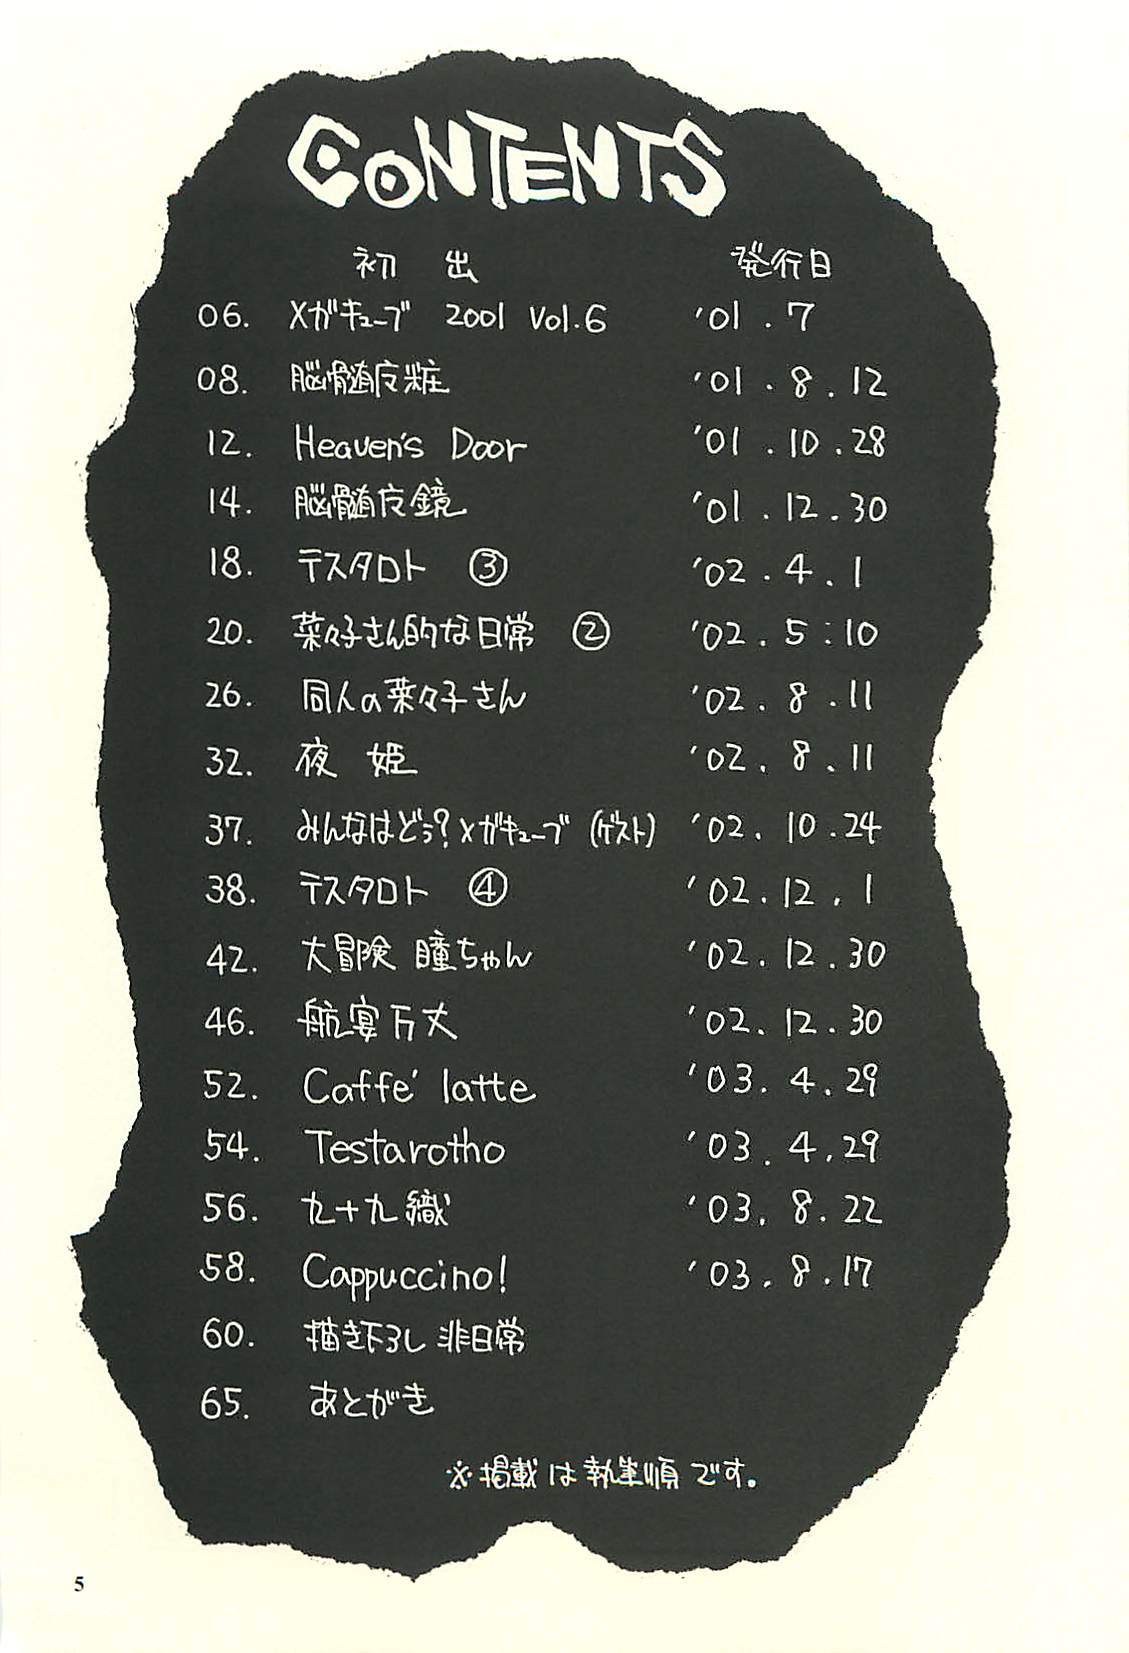 CONTENTS
初出 発行日
06. メガキューブ 2001 Vol.6 '01.7
08. 脳髄皮粧 '01.8.12
12. Heaven's Door '01.10.28
14. 脳髄皮鏡 '01.12.30
18. テスタロト ③ '02.4.1
20. 菜々子さん的な日常 ② '02.5:10
26. 同人の菜々子さん '02.8.11
32. 夜姫 '02.8.11
37. みんなはどう?メガキューブ(ゲスト) '02.10.24
38. テスタロト ④ '02.12.1
42. 大冒険 瞳ちゃん '02.12.30
46. 航宴万丈 '02.12.30
52. Caffe' latte '03.4.29
54. Testarotho '03.4.29
56. 九十九織 '03.8.22
58. Cappuccino! '03.8.17
60. 描き下ろし 非日常
65. あとがき
※掲載は執筆順です。
5